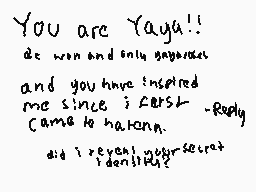 You are Yaya!!
de won and only yayarosei
and you have inspired
me since i ferst -Reply
came to hatena.
did i reveal your secret
identity?